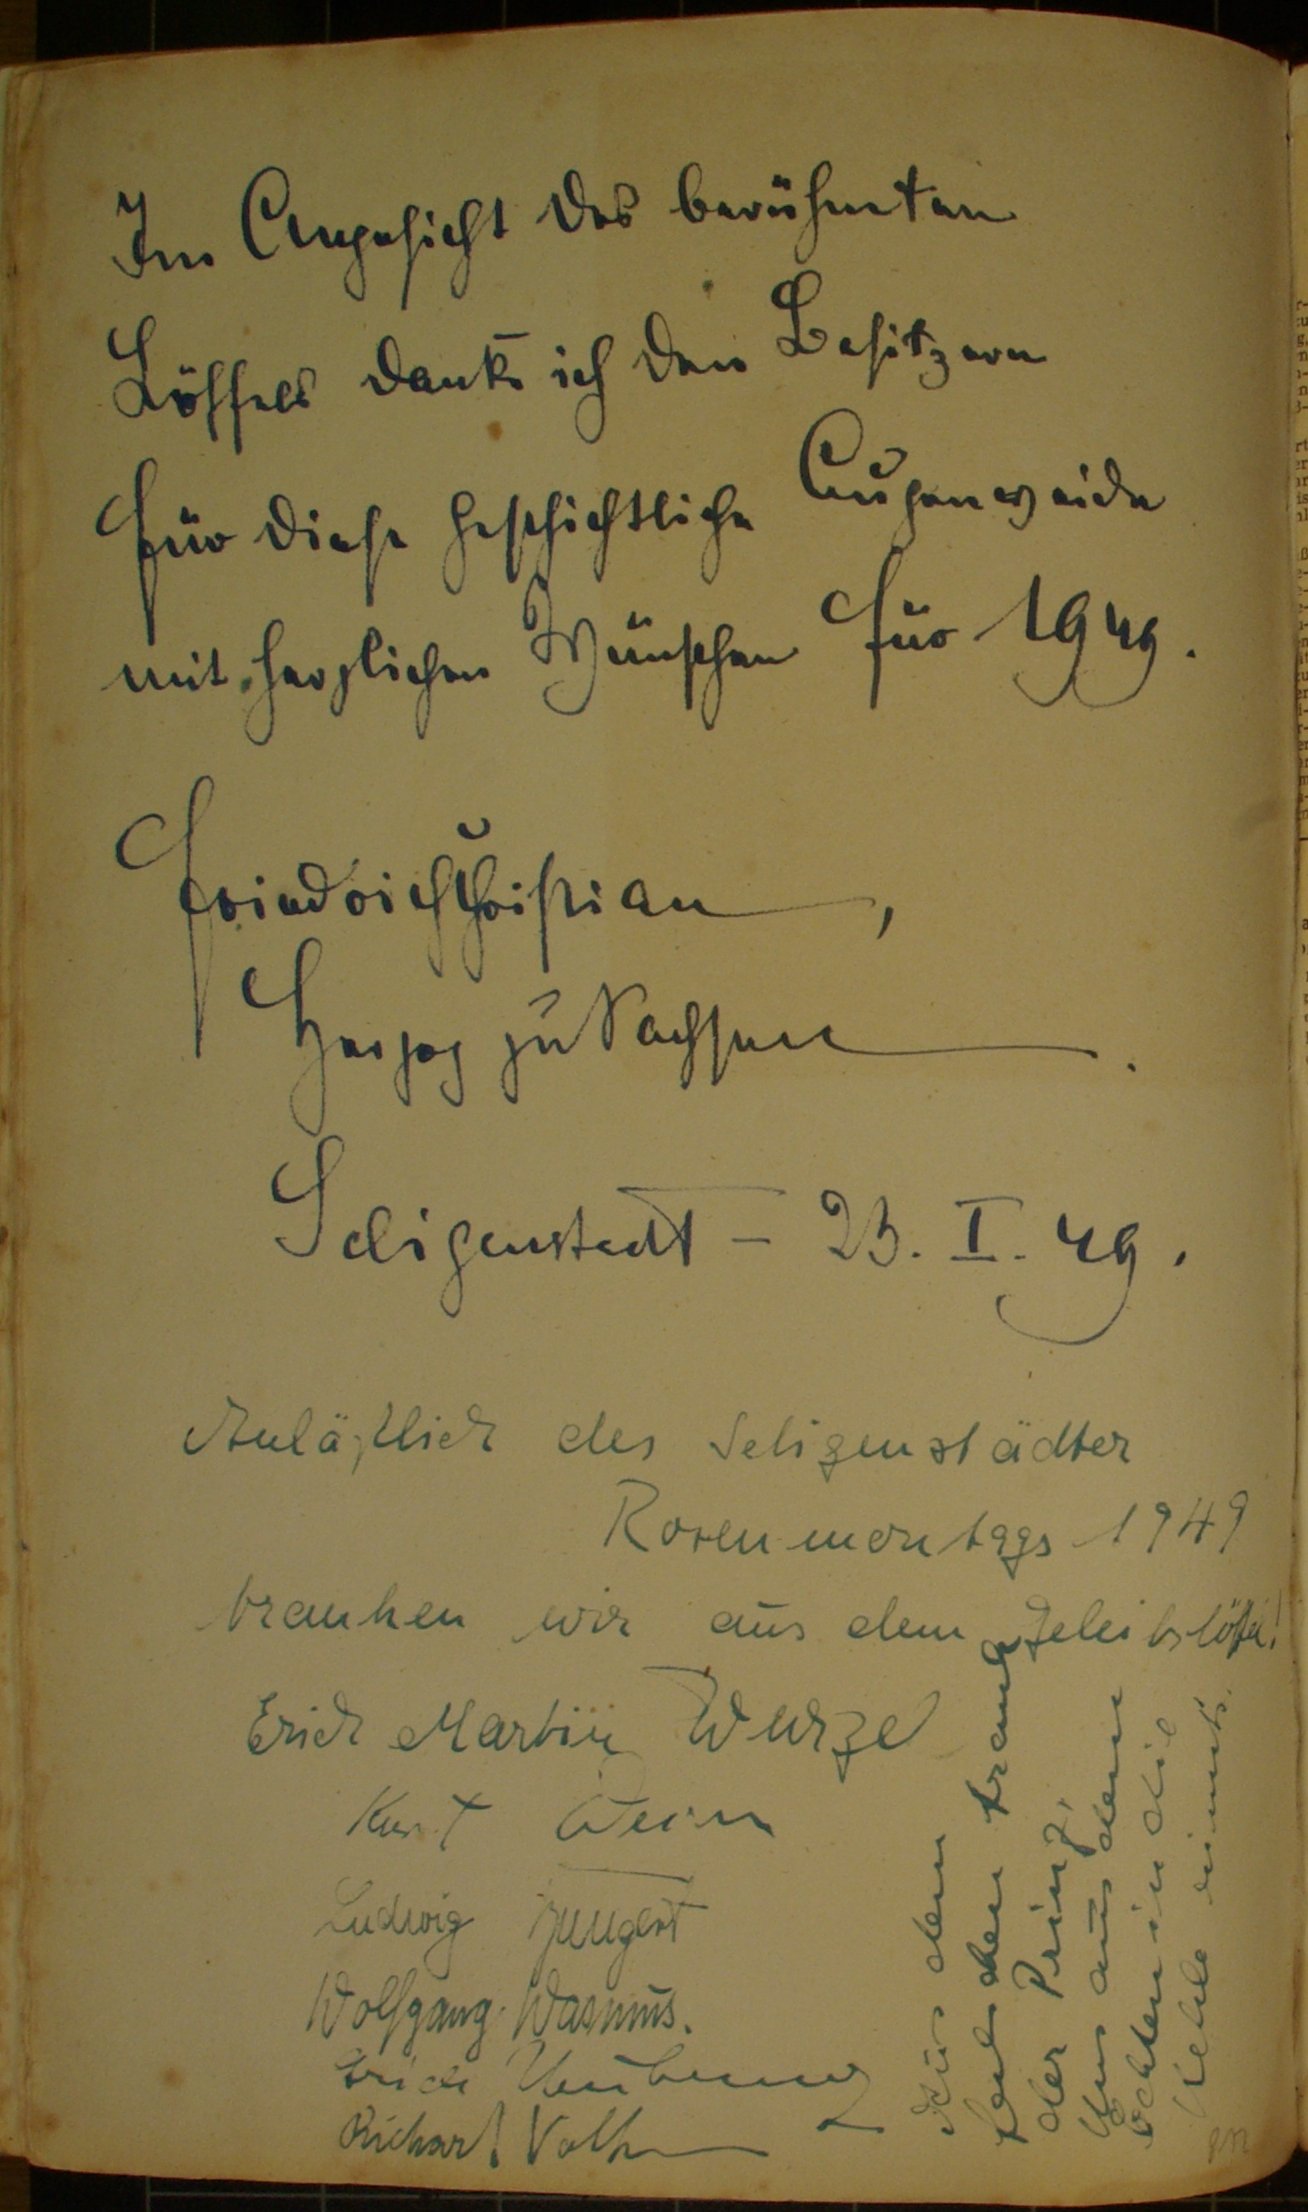 Im Angesicht des berühmten
Löffels dank ich den Besitzern
für diese geschichtliche Augenweide
mit herzlichen Wünschen für 1949.
Friedrich Christian,
Herzog zu Sachsen.
Seligenstadt – 23. I. 49.
Anläßlich des Seligenstädter
Rosenmontags 1949
tranken wir aus dem Geleitslöffel!
Erich Martin Wurzel
Kurt
Ludwig Jungert
Wolfgang Wasmus.
Erich
Richard Volk
Aus dem
falschen trank
der Prinz,
Uns aus dem
echten in die
Kehle rinnts.